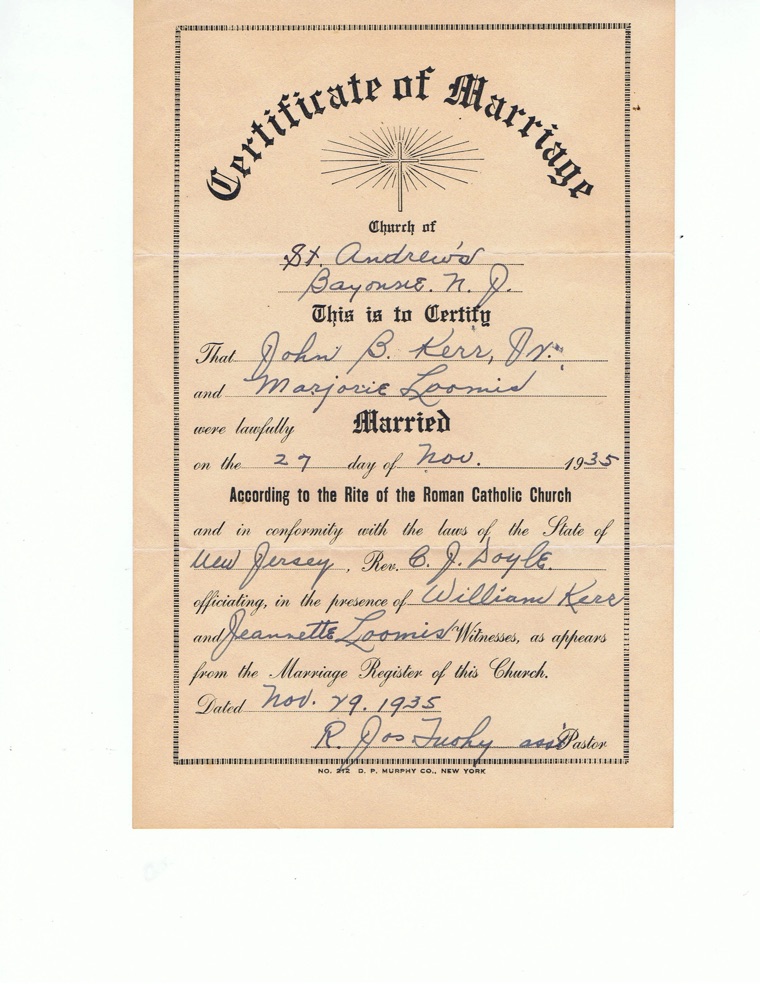 Certificate of Marriage
Church of
St. Andrew's
Bayonne. N. J.
This is to Certify
That John B. Kerr, Jr.
and Marjorie Loomis
were lawfully Married
on the 27 day of Nov. 1935
According to the Rite of the Roman Catholic Church
and in conformity with the laws of the State of
New Jersey, Rev. C. J. Doyle.
officiating, in the presence of William Kerr
and Jeannette Loomis Witnesses, as appears
from the Marriage Register of this Church.
Dated Nov. 29. 1935
R. Jos Tuohy ass't Pastor
NO. 212 D. P. MURPHY CO., NEW YORK